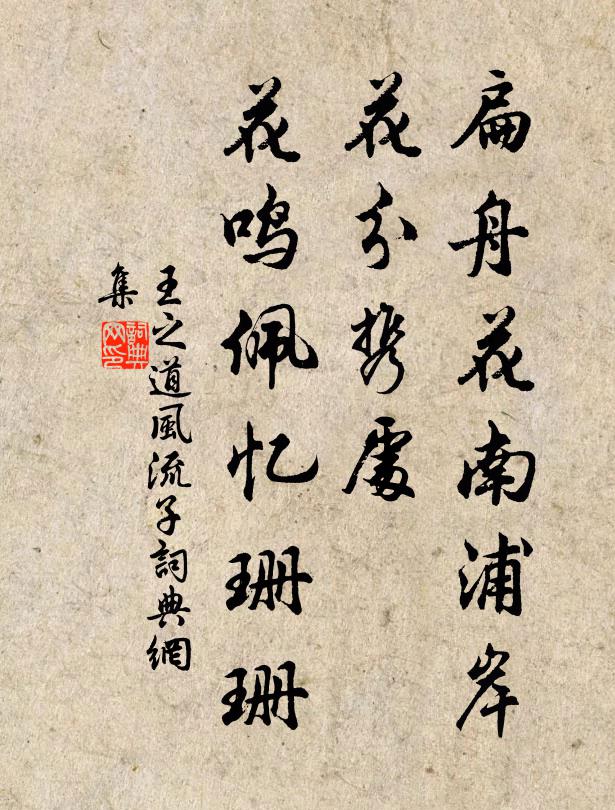 扁舟花南浦岸
花分携處
花鸣佩忆珊珊
王之道風流子詞典網
集
詞典网印